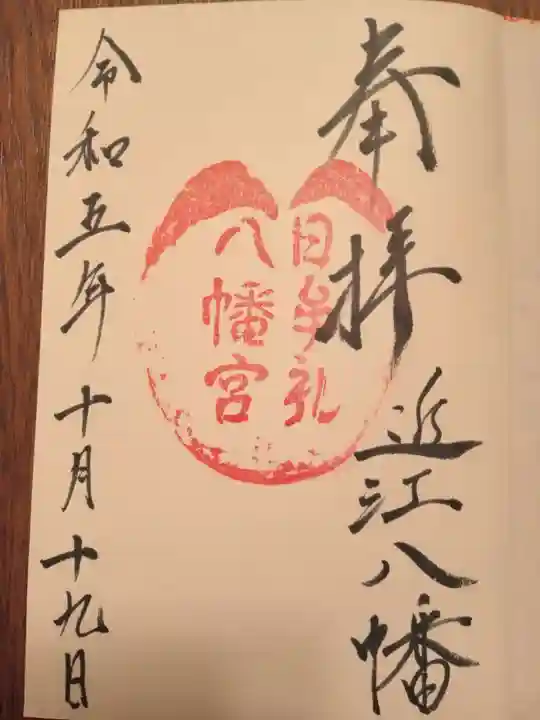 奉拝　近江八幡
日牟礼
八幡宮
令和五年十月十九日